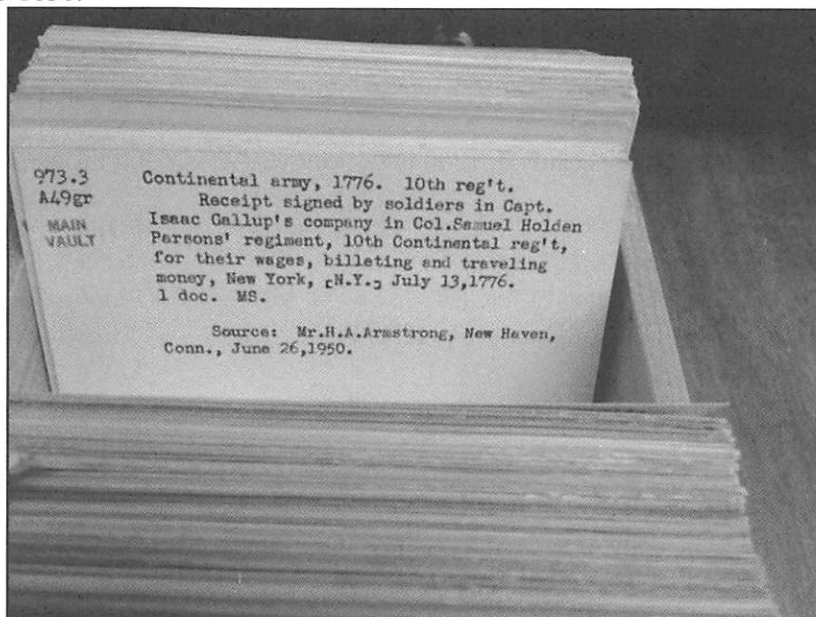 973.3
A49gr
MAIN
VAULT
Continental army, 1776. 10th reg't.
Receipt signed by soldiers in Capt.
Isaac Gallup's company in Col.Samuel Holden
Parsons' regiment, 10th Continental reg't,
for their wages, billeting and traveling
money, New York, [N.Y.] July 13,1776.
1 doc. MS.
Source: Mr.H.A.Armstrong, New Haven,
Conn., June 26,1950.